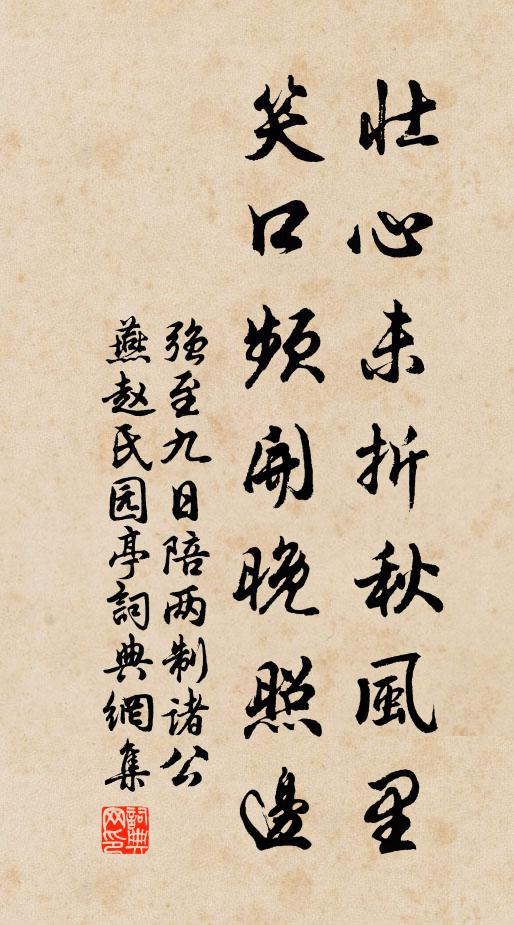 壮心未折秋風里
笑口頻開晚照邊
強至九日陪两制諸公
燕赵氏园亭詞典網集
詞典网印